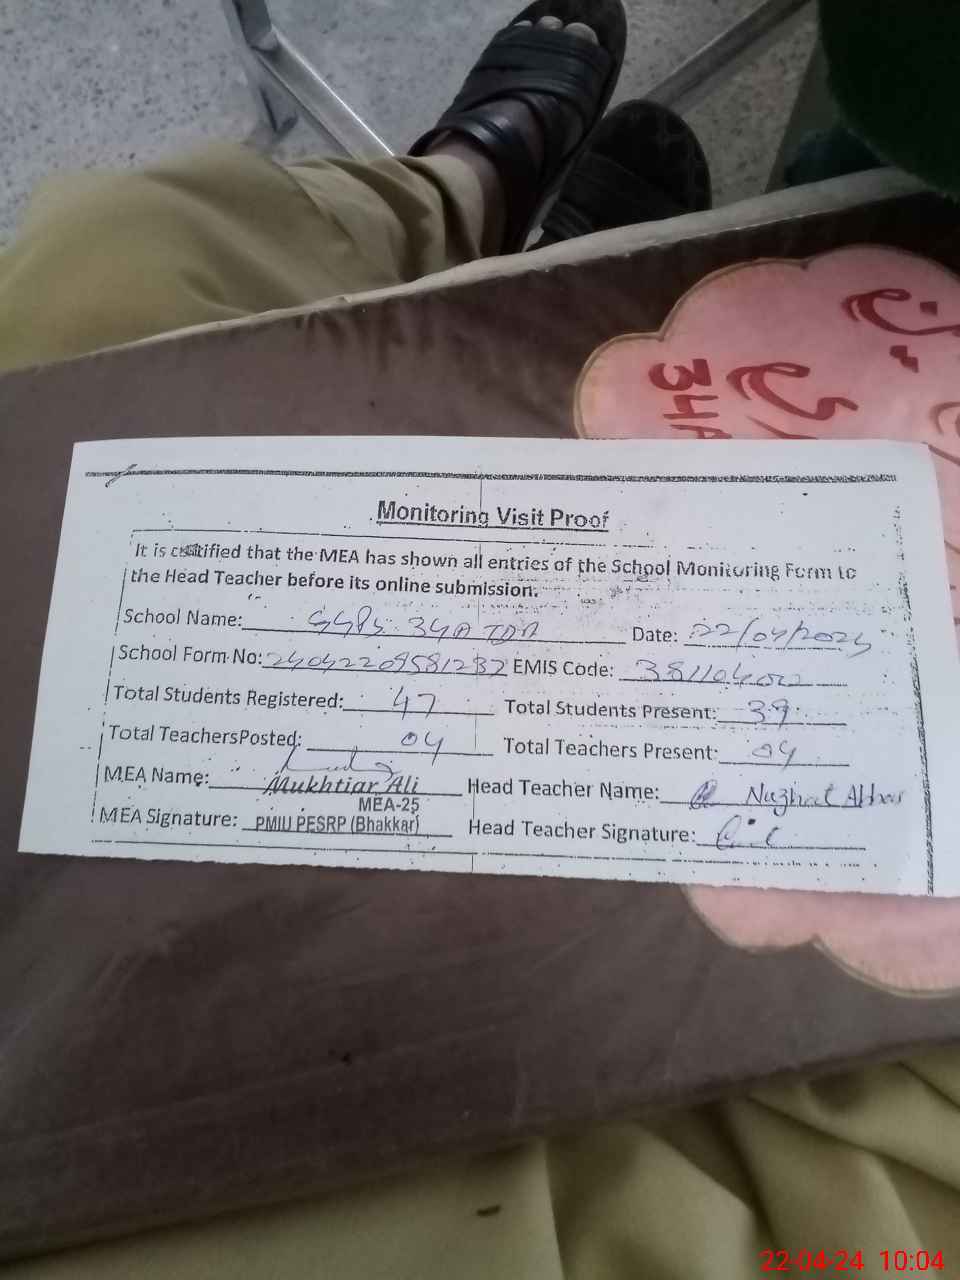 34A
Monitoring Visit Proof
It is certified that the MEA has shown all entries of the School Monitoring Form to
the Head Teacher before its online submission.
School Name: GGPS 34A TDA Date: 22/04/2024
School Form No: 24042209581232 EMIS Code:
Total Students Registered: 47 Total Students Present: 39
Total TeachersPosted: 04 Total Teachers Present: 04
MEA Name: Mukhtiar Ali Head Teacher Name: Nuzhat Abbas
MEA-25
MEA Signature: PMIU PESRP (Bhakkar) Head Teacher Signature:
22-04-24 10:04